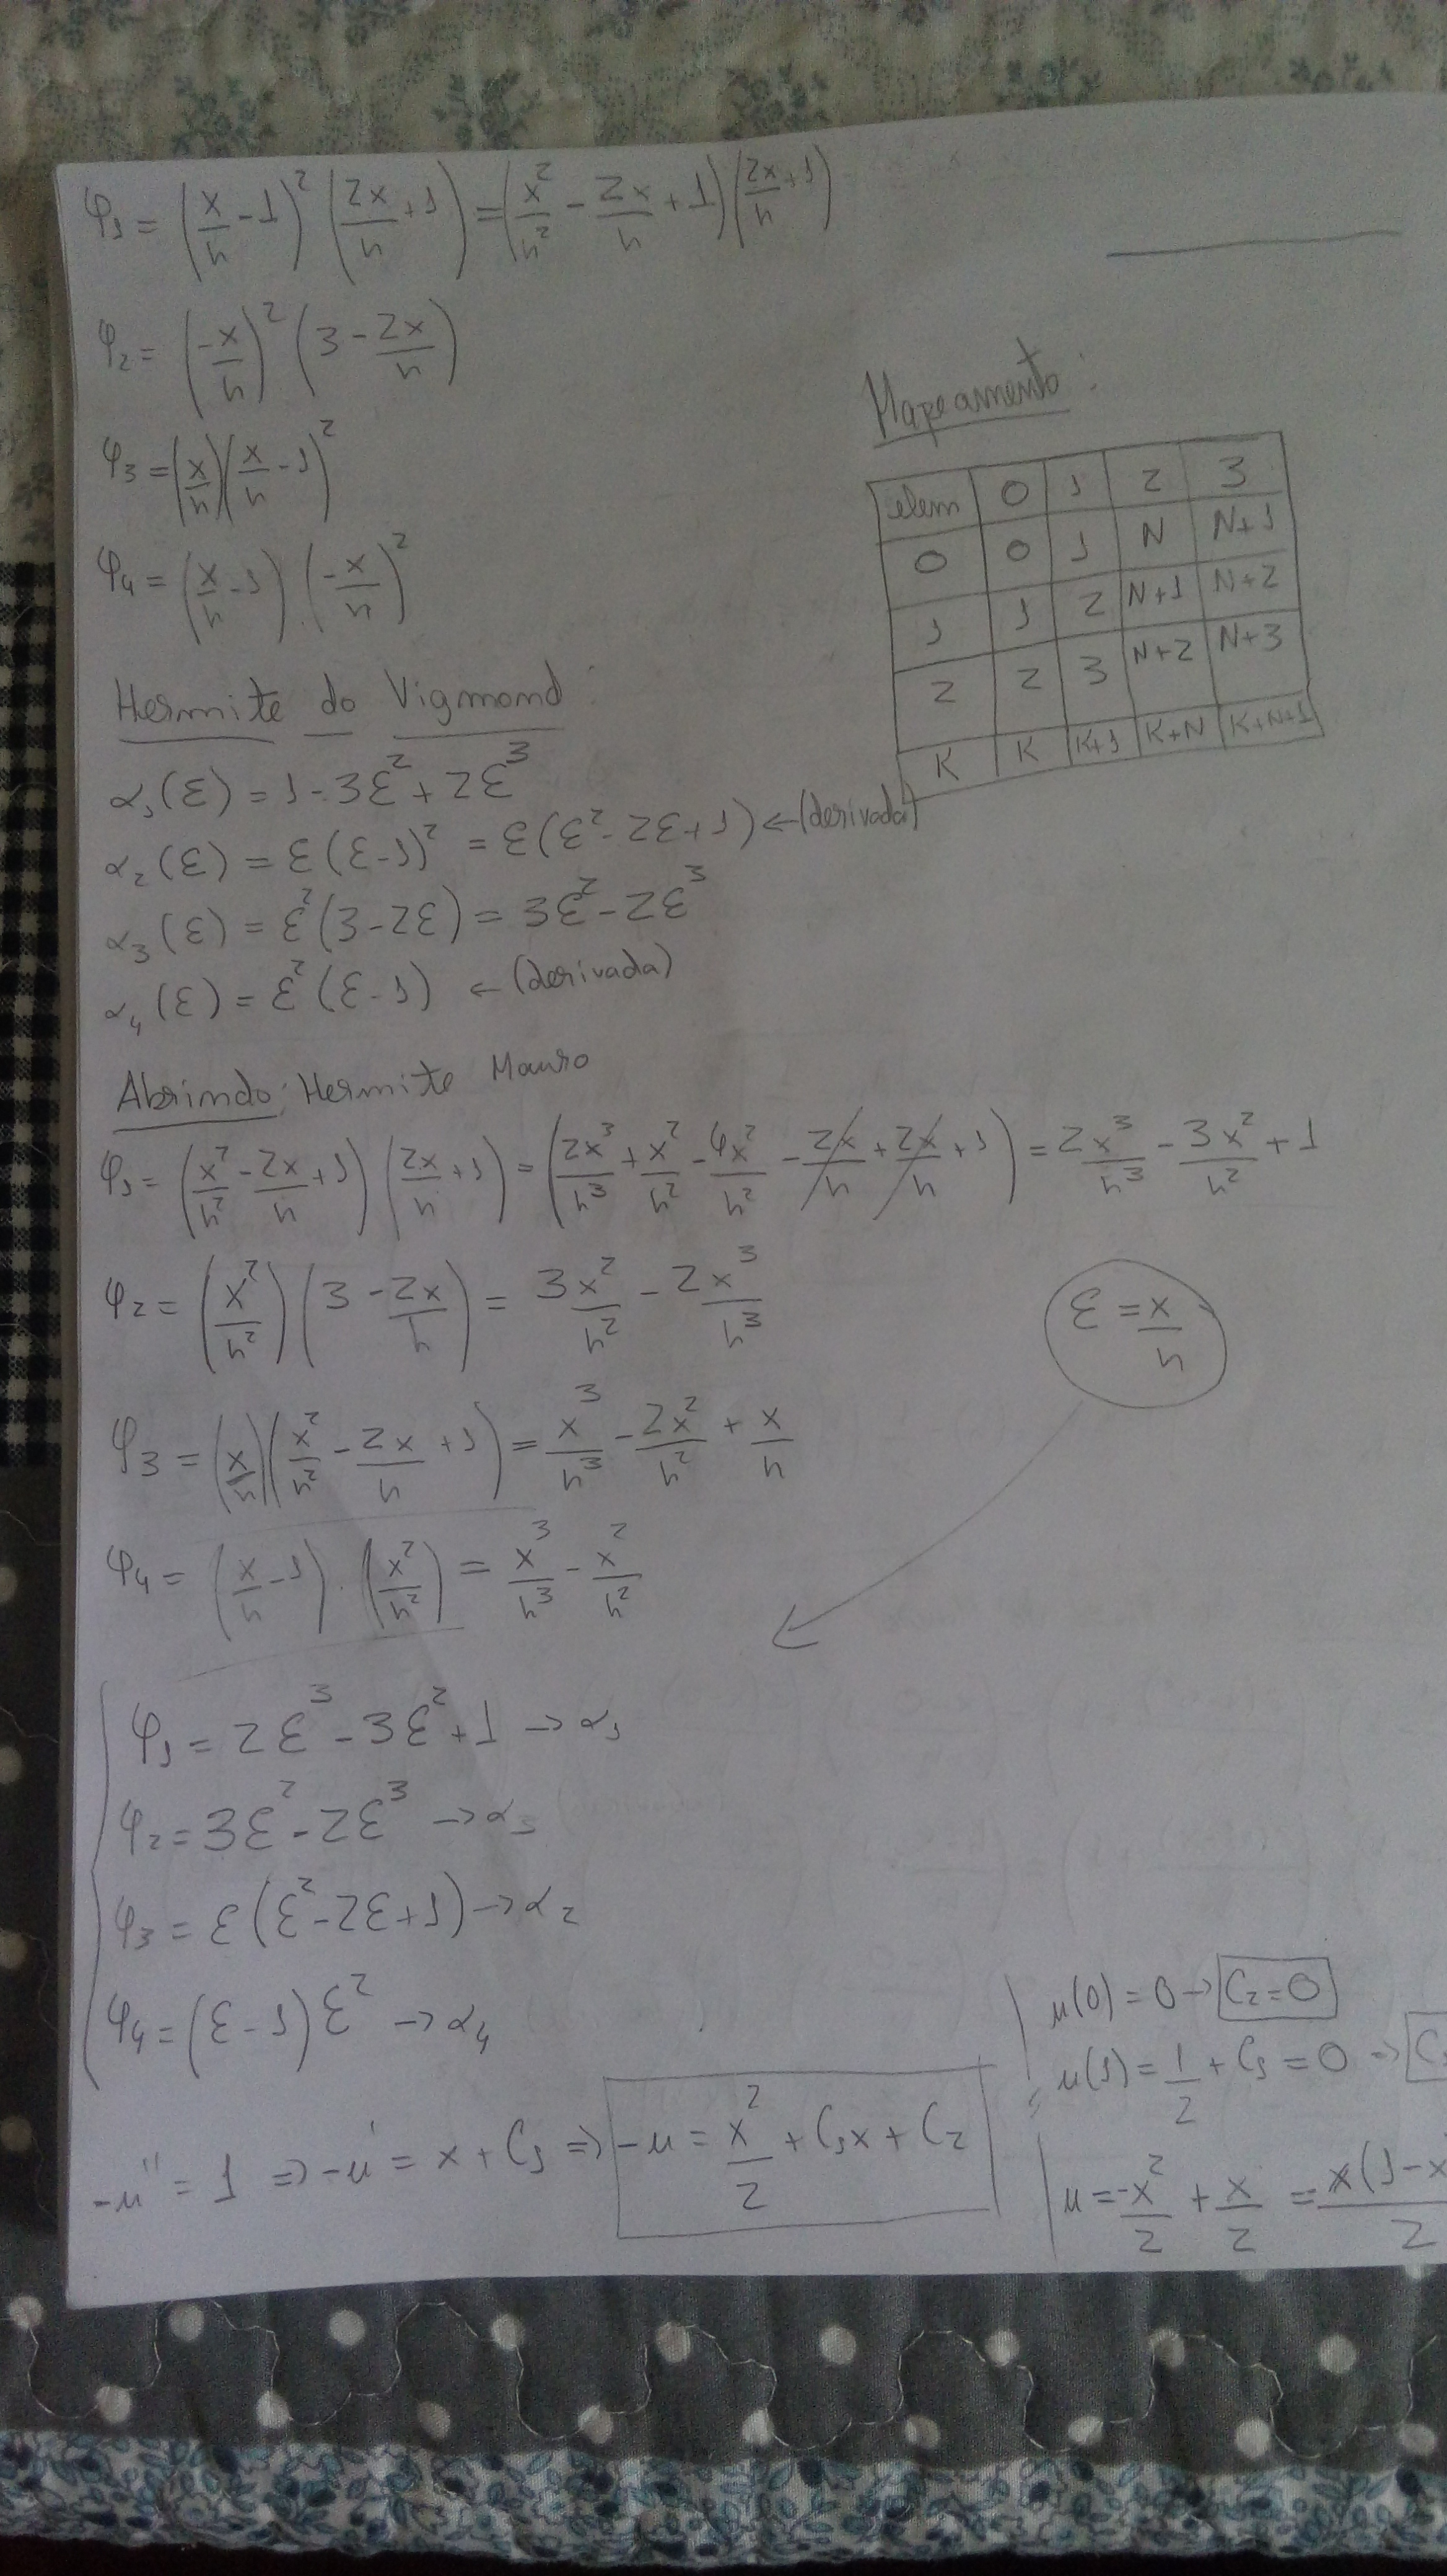 φ₁ = (x/h - 1)² (2x/h + 1) = (x²/h² - 2x/h + 1)(2x/h + 1)
φ₂ = (-x/h)² (3 - 2x/h)
φ₃ = (x/h)(x/h - 1)²
φ₄ = (x/h - 1) . (-x/h)²
Mapeamento:
elem 0 1 2 3
0 0 1 N N+1
1 1 2 N+1 N+2
2 2 3 N+2 N+3
K K K+1 K+N K+N+1
Hermite do Vigmond:
α₁(ε) = 1 - 3ε² + 2ε³
α₂(ε) = ε(ε-1)² = ε(ε² - 2ε + 1) ← (derivada)
α₃(ε) = ε²(3-2ε) = 3ε² - 2ε³
α₄(ε) = ε²(ε-1) ← (derivada)
Abrindo: Hermite Mauro
φ₁ = (x²/h² - 2x/h + 1)(2x/h + 1) = (2x³/h³ + x²/h² - 4x²/h² - 2x/h + 2x/h + 1) = 2x³/h³ - 3x²/h² + 1
φ₂ = (x²/h²)(3 - 2x/h) = 3x²/h² - 2x³/h³
ε = x/h
φ₃ = (x/h)(x²/h² - 2x/h + 1) = x³/h³ - 2x²/h² + x/h
φ₄ = (x/h - 1) . (x²/h²) = x³/h³ - x²/h²
φ₁ = 2ε³ - 3ε² + 1 → α₁
φ₂ = 3ε² - 2ε³ → α₃
φ₃ = ε(ε² - 2ε + 1) → α₂
φ₄ = (ε - 1)ε² → α₄
-u'' = 1 ⇒ -u' = x + C₁ ⇒ -u = x²/2 + C₁x + C₂
u(0) = 0 → C₂ = 0
u(1) = 1/2 + C₁ = 0 ⇒ C
u = -x²/2 + x/2 = x(1-x/2